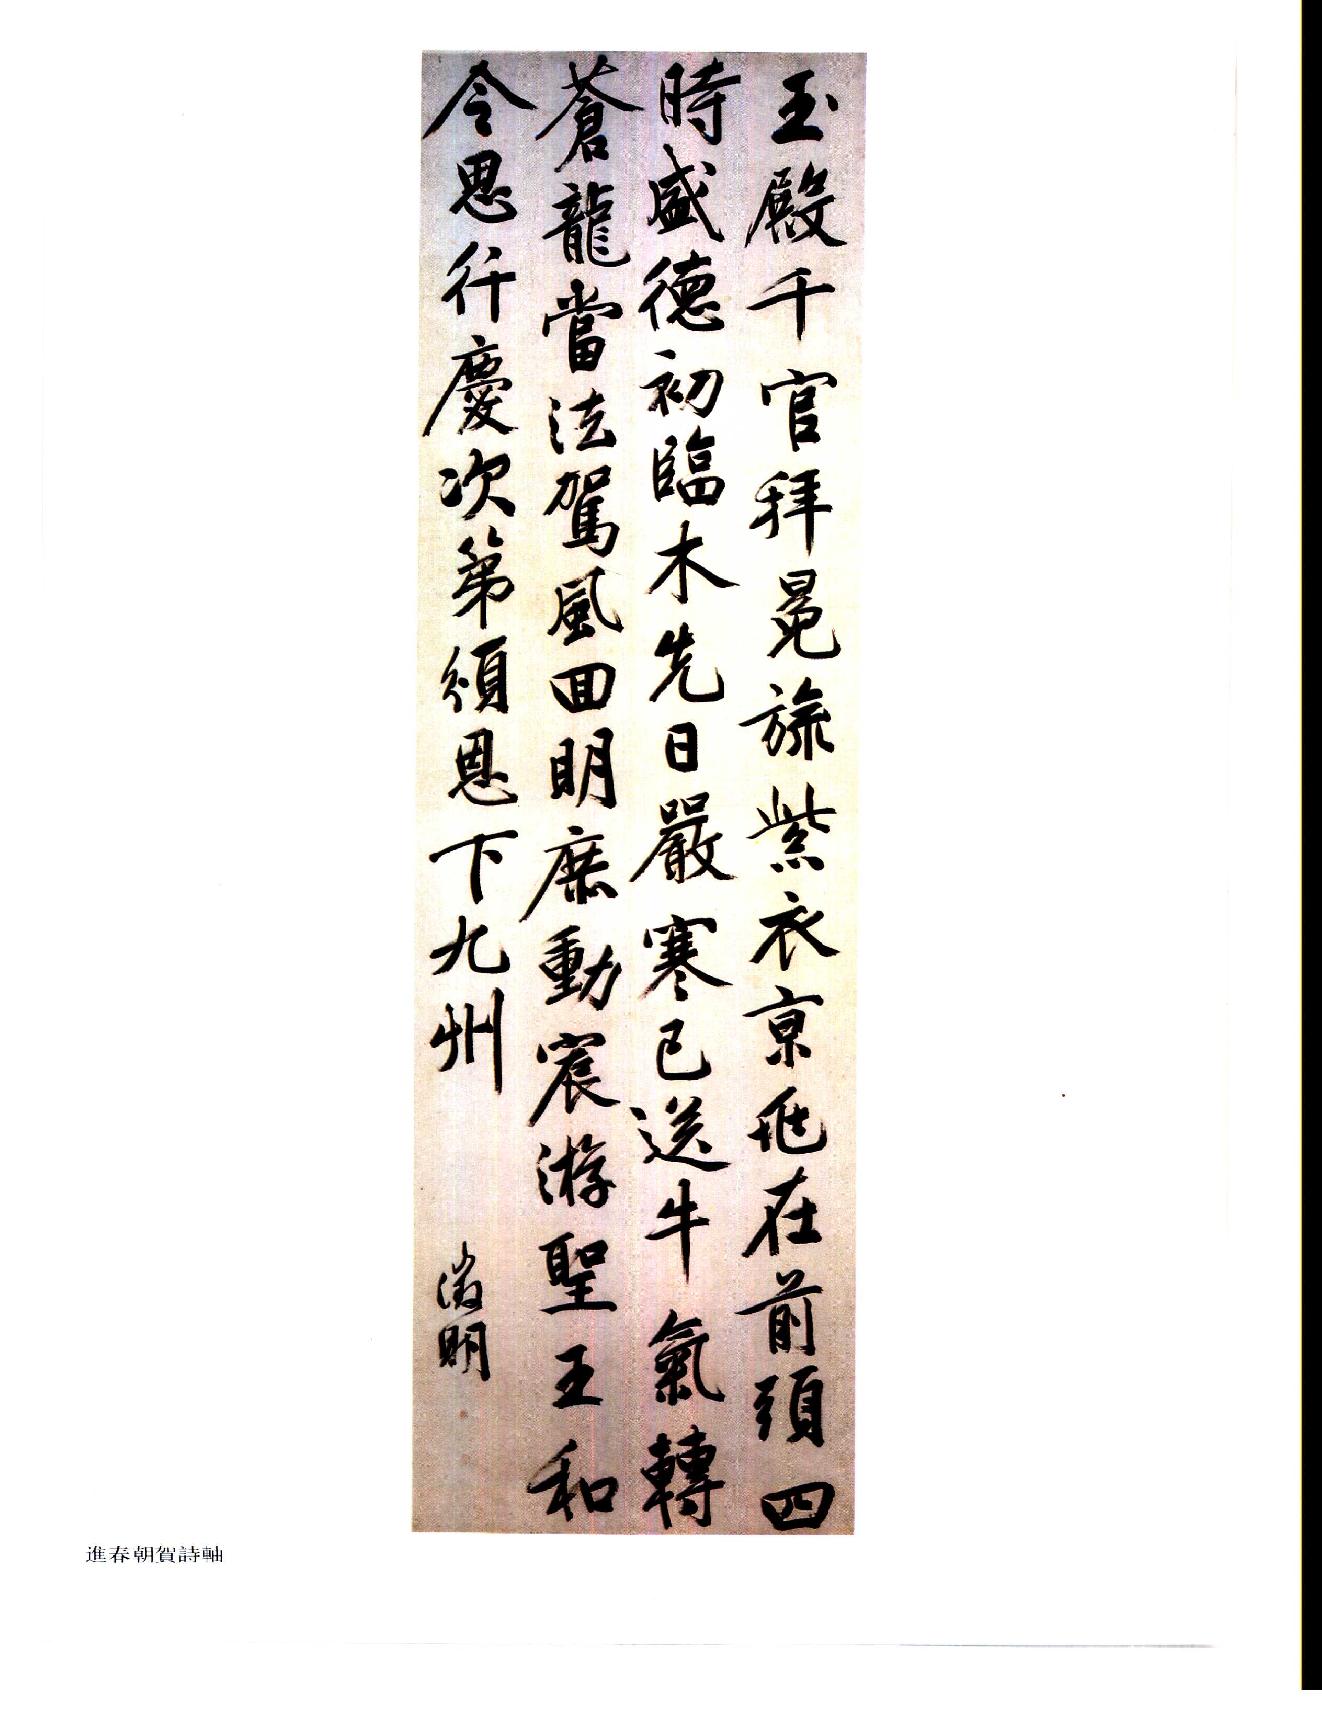 玉殿千官拜冕旒紫衣京兆在前頭四
時盛德初臨木先日嚴寒已送牛氣轉
蒼龍當法駕風回明庶動宸游聖王和
令思行慶次第頒恩下九州
徵明
進春朝賀詩軸